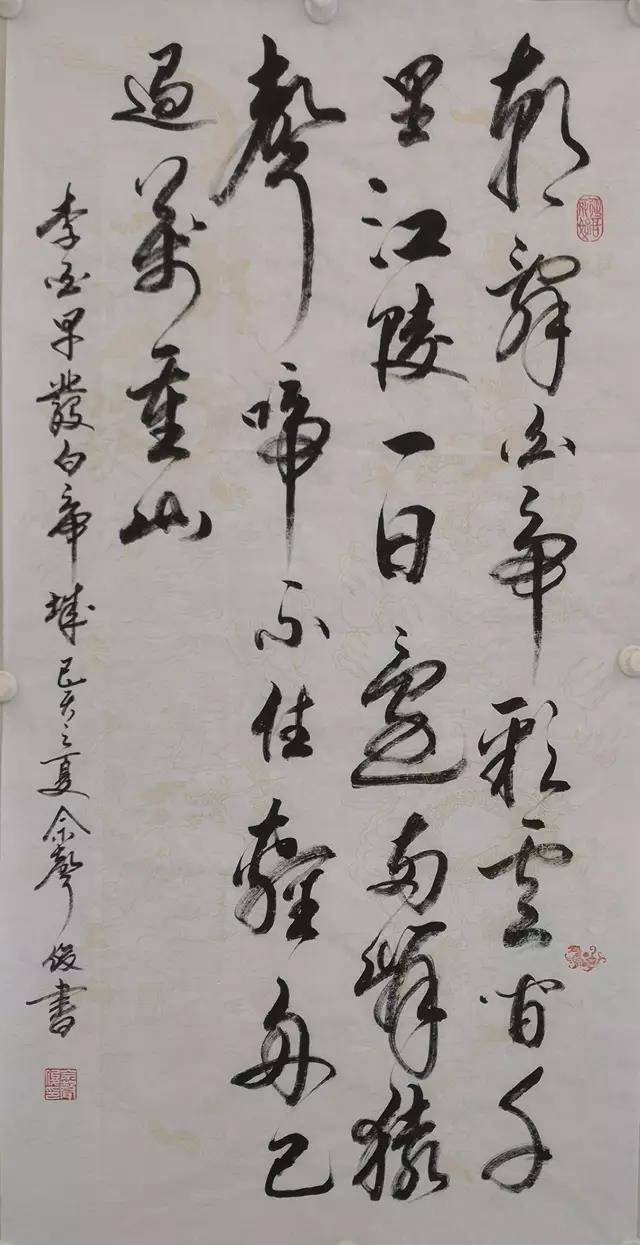 朝辞白帝彩云间千
里江陵一日還両岸猿
聲啼不住輕舟已
過萬重山
李白早發白帝城己亥之夏余聲俊書